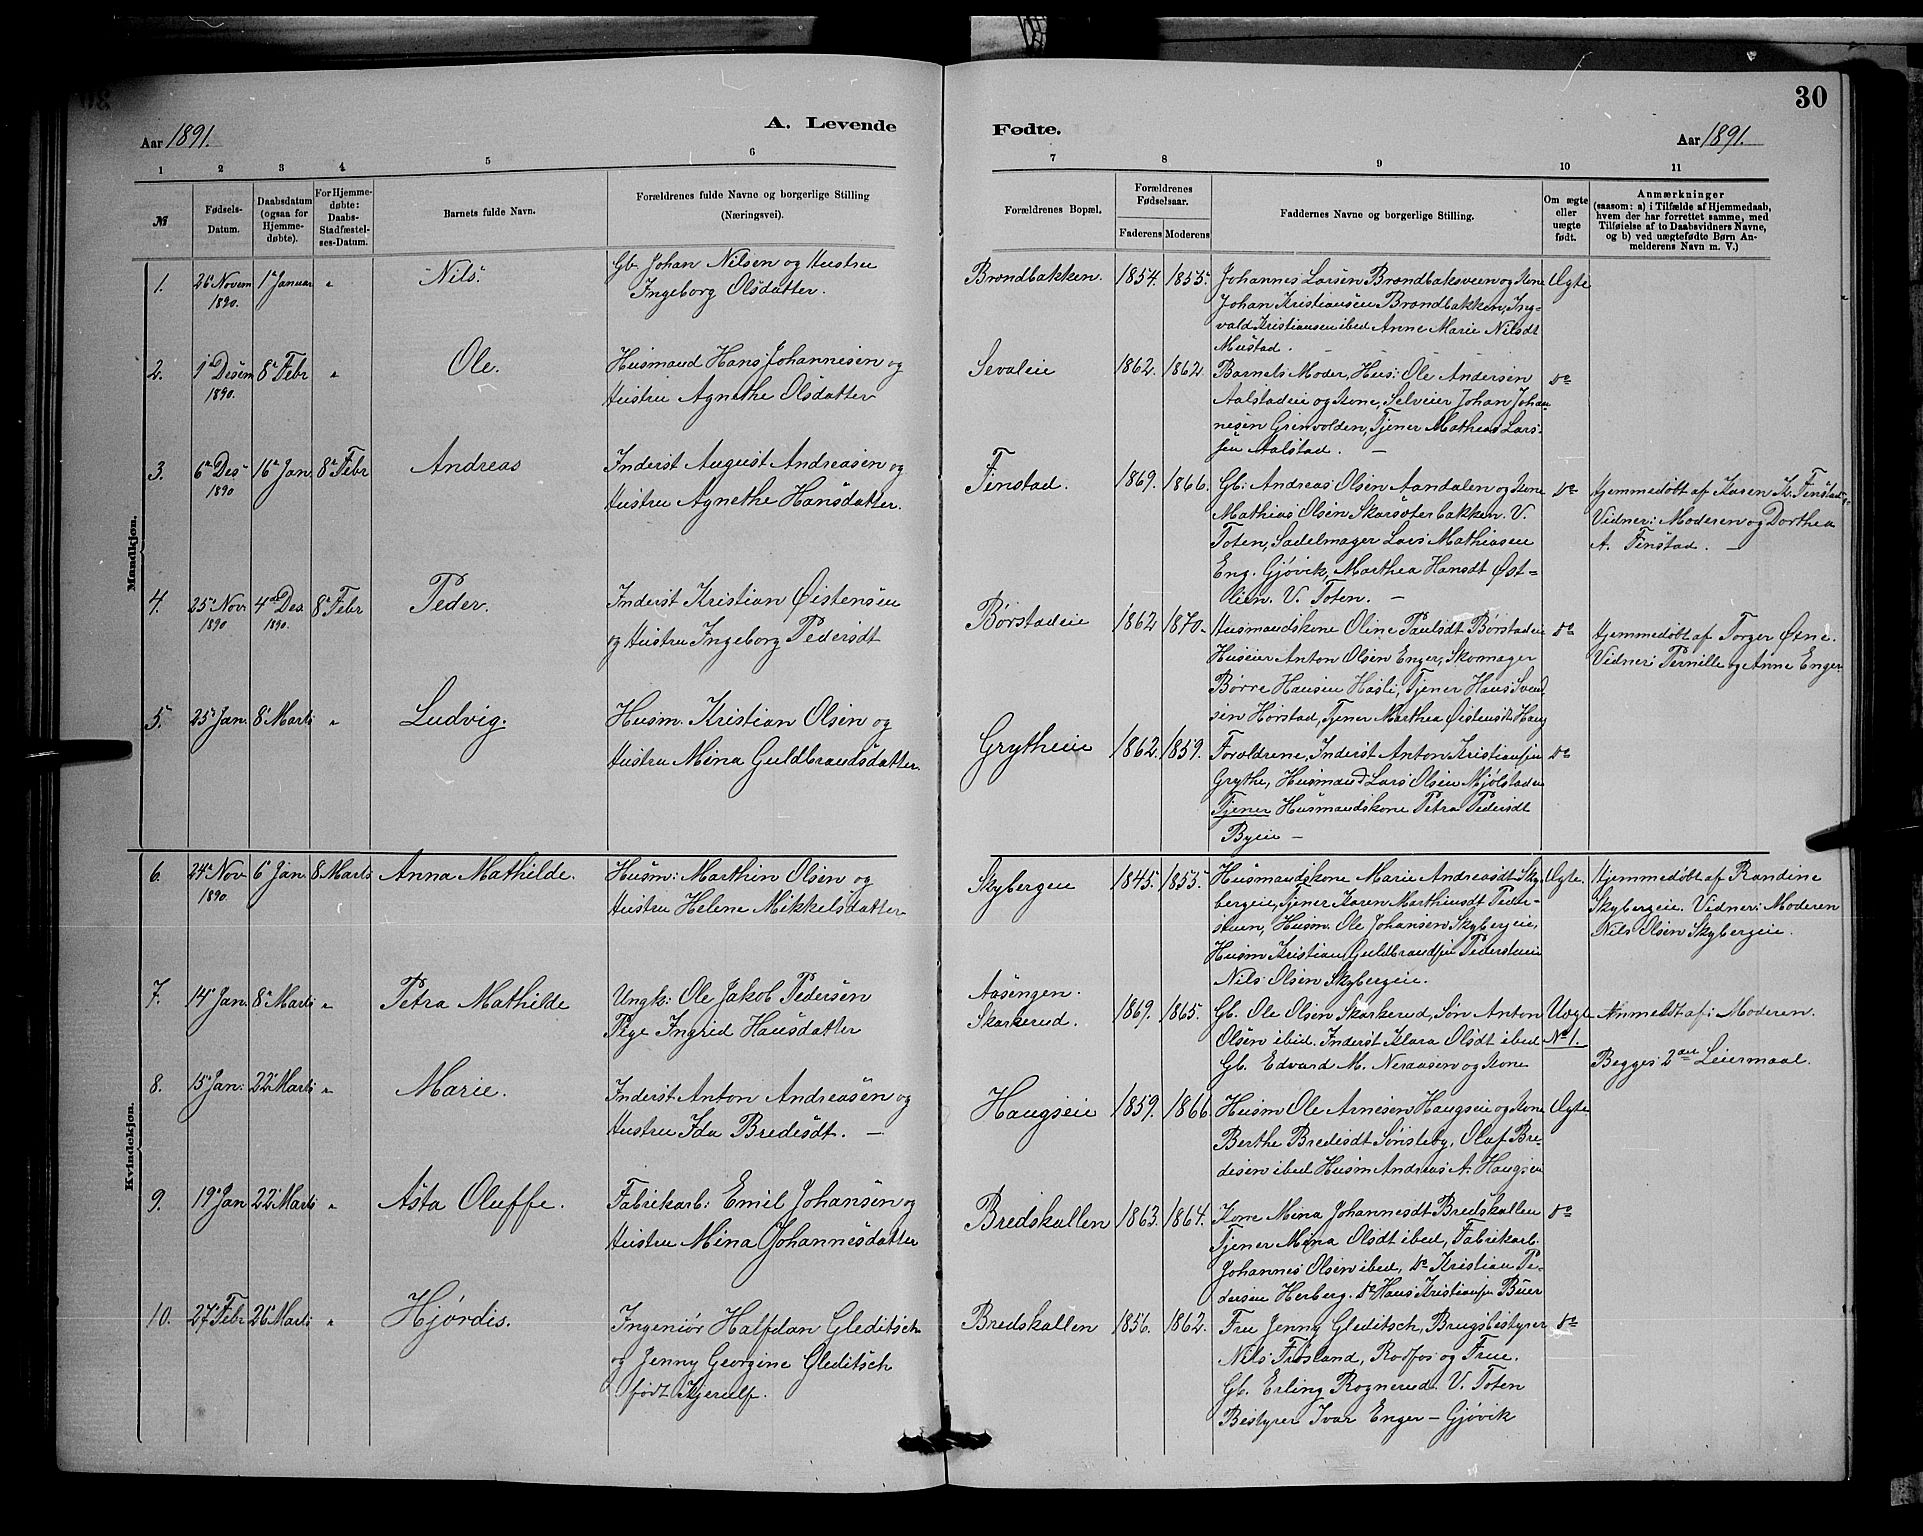 30
Aar 1891.
A. Levende
Fødte.
Aar 1891.
1 2 3 4 5 6
7 8 9 10 11
№
Fødsels-
Datum.
Daabsdatum
(ogsaa for
Hjemme-
døbte).
For Hjemme-
døbte:
Daabs-
Stadfæstel-
ses-Datum.
Barnets fulde Navn.
Forældrenes fulde Navne og borgerlige Stilling
(Næringsvei).
Forældrenes Bopæl.
Forældrenes
Fødselsaar.
Faderens Moderens
Faddernes Navne og borgerlige Stilling.
Om ægte
eller
uægte
født.
Anmærkninger
(saasom: a) i Tilfælde af Hjemmedaab,
hvem der har forrettet samme, med
Tilføielse af to Daabsvidners Navne,
og b) ved uægtefødte Børn An-
melderens Navn m. V.)
Mandkjøn.
1.
26 Novem
1890.
1 Januar
"
Nils.
Gb. Johan Nilsen og Hustru
Ingeborg Olsdatter.
Brøndbakken.
1854.
1855.
Johannes Larsen Brøndbaksveen og Kone
Johan Kristiansen Brøndbakken, Ing-
vald Kristiansen ibed Anne Marie Nilsdt
Mustad.
Ægte
2.
1 Desem
1890.
8 Febr
"
Ole.
Husmand Hans Johannesen og
Hustru Agnethe Olsdatter
Sevaleie
1862.
1862.
Barnets Moder, Hus: Ole Andersen
Aalstadeie og Kone, Selveier Johan Johan-
nesen Grinvolden, Tjener Mathea Lars-
sen Aalstad. —
do
3.
6 Des
1890
16 Jan
8 Febr
Andreas
Inderst August Andreasen og
Hustru Agnethe Hansdatter.
Finstad.
1869.
1866.
Gb: Andreas Olsen Aandalen og Kone
Mathias Olsen Skarsæterbakken. V.
Toten, Sadelmager Lars Mathiasen
Eng. Gjøvik, Marthea Hansdt Øst-
lien. V. Toten. —
do
Hjemmedøbt af Karen K. Finstad.
Vidner: Moderen og Dorthea
A. Finstad. —
4.
25 Nov
1890
4 Des
1890.
8 Febr
Peder.
Inderst Kristian Øistensen
og Hustru Ingeborg Pedersdt
Børstadeie
1862
1870.
Husmandskone Oline Paulsdt Børstadeie
Huseier Anton Olsen Enger, Skomager
Børre Hansen Hasli, Tjener Hans Svend-
sen Hørstad, Tjener Marthea Øistensdt Haug
do
Hjemmedøbt af Torger Øxne.
Vidner: Pernille og Anne Enger
5.
25 Jan.
8 Marts
"
Ludvig.
Husm. Kristian Olsen og
Hustru Mina Guldbrandsdatter.
Grytheie
1862.
1859.
Forældrene, Inderst Anton Kristiansen
Grythe, Husmand Lars Olsen Mjølstadeie
Tjener Husmandskone Petra Pedersdt
Byeie —
do
Kvindekjøn.
6.
24 Nov
1890.
6 Jan.
8 Marts
Anna Mathilde.
Husm: Marthin Olsen og
Hustru Helene Mikkelsdatter
Skybergeie
1845.
1855.
Husmandskone Marie Andreasdt Sky-
bergeie, Tjener Karen Marthinsdt Peder-
steen, Husm. Ole Johansen Skybergeie,
Husm Kristian Guldbrandsen Pedersteeie
Nils Olsen Skybergeie.
Ægte.
Hjemmedøbt af Randine
Skybergeie. Vidner: Moderen
Nils Olsen Skybergeie.
7.
14 Jan.
8 Marts
"
Petra Mathilde
Ungk: Ole Jakob Pedersen
Pige Ingrid Hansdatter
Aasengen.
Skarkerud.
1869.
1865.
Gb. Ole Olsen Skarkerud, Søn Anton
Olsen ibid. Inderst Klara Olsdt ibed
Gb. Edvard M. Neraasen og Kone
Uægte
No 1.
Anmeldt af: Moderen.
Begges 2det Leiermaal.
8.
15 Jan.
22 Marts
"
Marie.
Inderst Anton Andreasen og
Hustru Ida Bredesdt. —
Haugseie
1859.
1866
Husm Ole Arnesen Haugseie og Kone
Berthe Bredesdt Sønsteby, Olaf Bre-
desen ibed Husm Andreas A. Haugseie
Ægte
9.
19 Jan
22 Marts
"
Asta Oluffe.
Fabrikarb: Emil Johansen og
Hustru Mina Johannesdatter
Bredskallen
1863.
1864.
Kone Mina Johannesdt Bredskallen
Tjener Mina Olsdt ibed, Fabrikarb.
Johannes Olsen ibed, do Kristian Pe-
dersen Herberg. do Hans Kristiansen Buer
do
10.
27 Febr
26 Marts
"
Hjørdis.
Ingeniør Halfdan Gleditsch
og Jenny Georgine Gleditsch
født Kjerulf.
Bredskallen
1856.
1862.
Fru Jenny Gleditsch, Brugsbestyrer
Nils Frøsland, Rodfos og Frue.
Gb. Erling Rognerud. V. Toten
Bestyrer Ivar Enger — Gjøvik
do